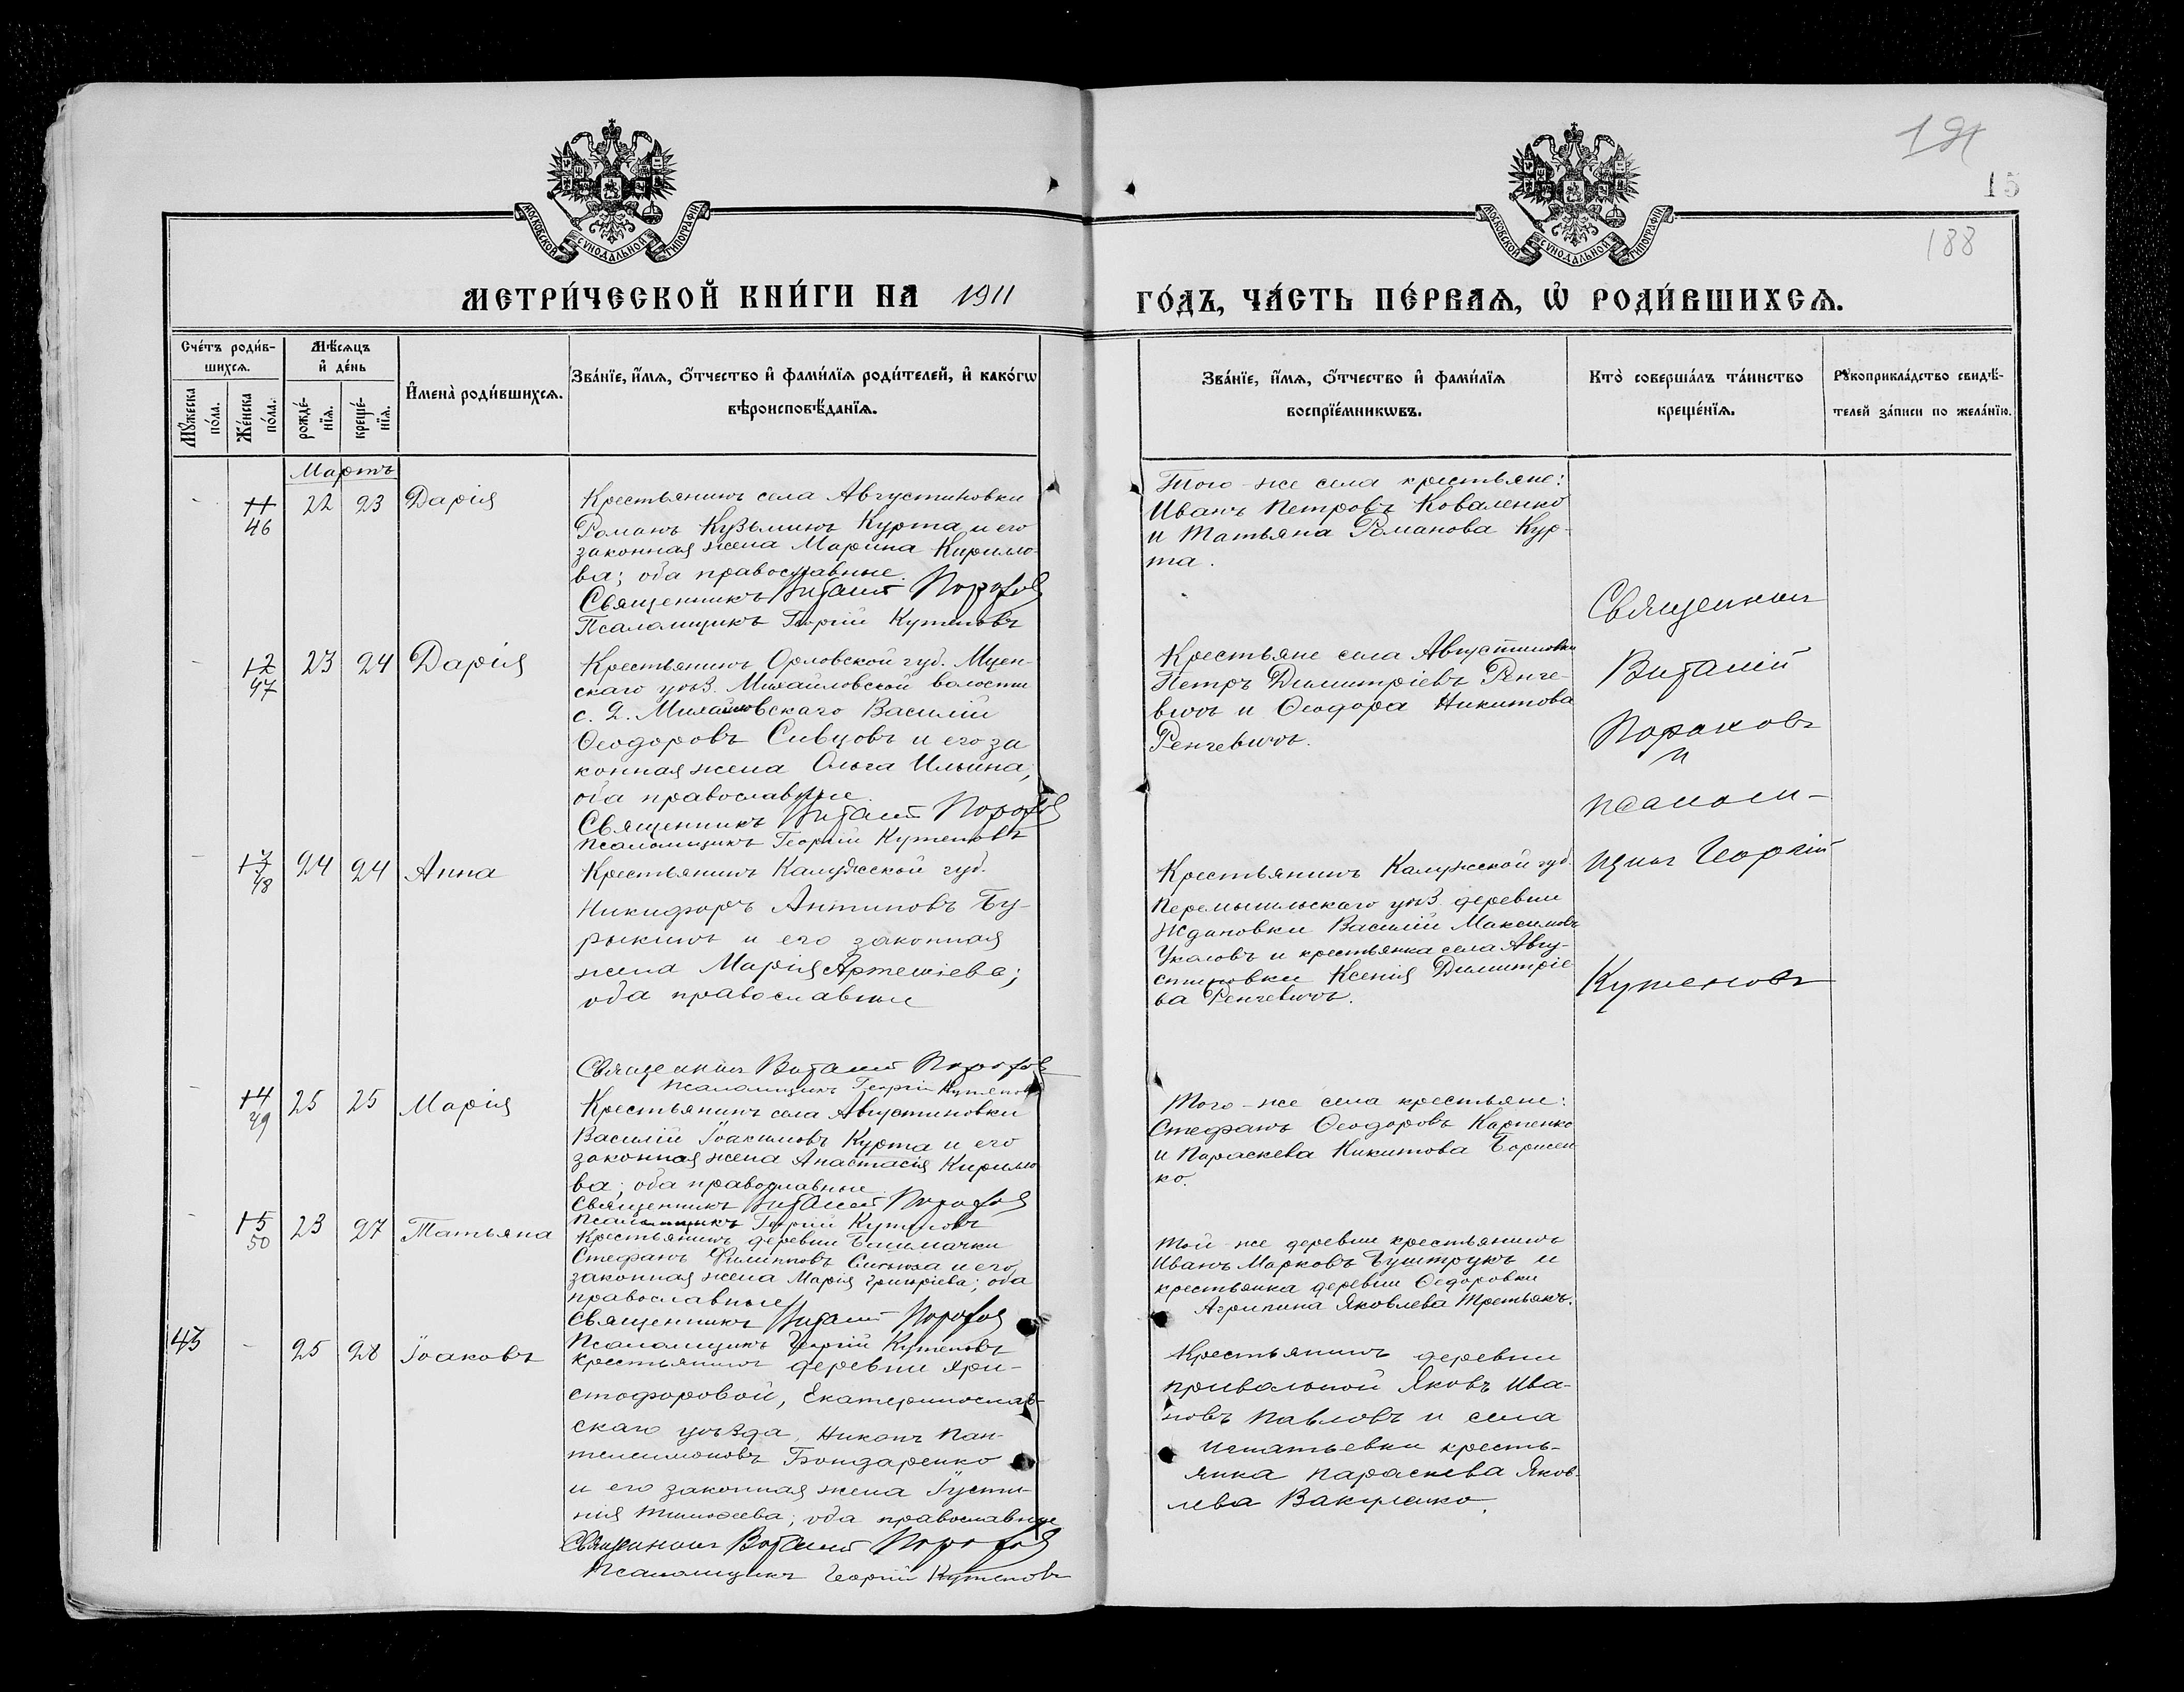 191
15
188
МОСКОВСКОЙ СѴНОДАЛЬНОЙ ТИПОГРАФІИ
МОСКОВСКОЙ СѴНОДАЛЬНОЙ ТИПОГРАФІИ
МЕТРИ́ЧЕСКОЙ КНИ́ГИ НА 1911
ГО́ДЪ, ЧА́СТЬ ПЕ́РВАѦ, Ѡ҆ РОДИ́ВШИХСѦ.
Сче́тъ роди́в-
шихсѧ.
Мꙋ́жеска по́ла.
Же́нска по́ла.
Мѣ́сѧцъ
и҆ де́нь
рожде́-
нїѧ.
креще́-
нїѧ.
И҆мена̀ роди́вшихсѧ.
Зва́нїе, и҆́мѧ, ѻ҆́тчество и҆ фами́лїѧ роди́телей, и҆ како́гѡ
вѣроисповѣ́данїѧ.
Зва́нїе, и҆́мѧ, ѻ҆́тчество и҆ фами́лїѧ
воспрїе́мникѡвъ.
Кто̀ соверша́лъ та́инство
креще́нїѧ.
Рꙋкоприкла́дство свидѣ́-
телей за́писи по жела́нїю.
Мартъ
- 11 46 22 23 Дарія
Крестьянинъ села Августиновки
Романъ Кузьминъ Курта и его
законная жена Марина Кирилло-
ва; оба православные.
Священникъ Виталій
Псаломщикъ Георгій Кутеповъ
Того-же села крестьяне:
Иванъ Петровъ Коваленко
и Татьяна Романова Кур-
та.
- 12 47 23 24 Дарія
Крестьянинъ Орловской губ. Мцен-
скаго уѣз. Михайловской волости
с. Д. Михайловскаго Василій
Ѳеодоровъ Сивцовъ и его за
конная жена Ольга Ильина;
оба православные.
Священникъ Виталій
Псаломщикъ Георгій Кутеповъ
Крестьяне села Августиновки
Петръ Димитріевъ Ренче-
вичъ и Ѳеодора Никитова
Ренчевичъ.
- 13 48 24 24 Анна
Крестьянинъ Калужской губ.
Никифоръ Антиповъ Бу-
рыкинъ и его законная
жена Марія Артеміева;
оба православные
Священникъ Виталій
Псаломщикъ Георгій Кутеповъ
Крестьянинъ Калужской губ.
Перемышльскаго уѣз. деревни
Ждановки Василій Максимовъ
Укаловъ и крестьянка села Авгу-
стиновки Ксенія Димитріе-
ва Ренчевичъ.
- 14 49 25 25 Марія
Крестьянинъ села Августиновки
Василій Іоакимовъ Курта и его
законная жена Анастасія Кирилло
ва; оба православные.
Священникъ Виталій
Псаломщикъ Георгій Кутеповъ
Того-же села крестьяне:
Стефанъ Ѳеодоровъ Карпенко
и Параскева Никитова Борисен
ко.
- 15 50 23 27 Татьяна
Крестьянинъ деревни Башмачки
Стефанъ Филипповъ и его
законная жена Марія Григоріева; оба
православные
Священникъ Виталій
Псаломщикъ Георгій Кутеповъ
Той-же деревни крестьянинъ
Иванъ Марковъ Буштрукъ и
крестьянка деревни Ѳедоровки
Агрипина Яковлева Третьякъ.
43 - 25 28 Іаковъ
Крестьянинъ деревни Хри-
стофоровой, Екатеринослав-
скаго уѣзда, Никонъ Пан-
телеимоновъ Бондаренко
и его законная жена Іусти-
нія Тимоѳеева; оба православные
Священникъ Виталій
Псаломщикъ Георгій Кутеповъ
Крестьянинъ деревни
Привольной Яковъ Ива-
новъ Павловъ и села
Игнатьевки кресть-
янка Параскева Яков-
лева Вакуленко.
Священникъ
Виталій
и
псалом-
щикъ Георгій
Кутеповъ